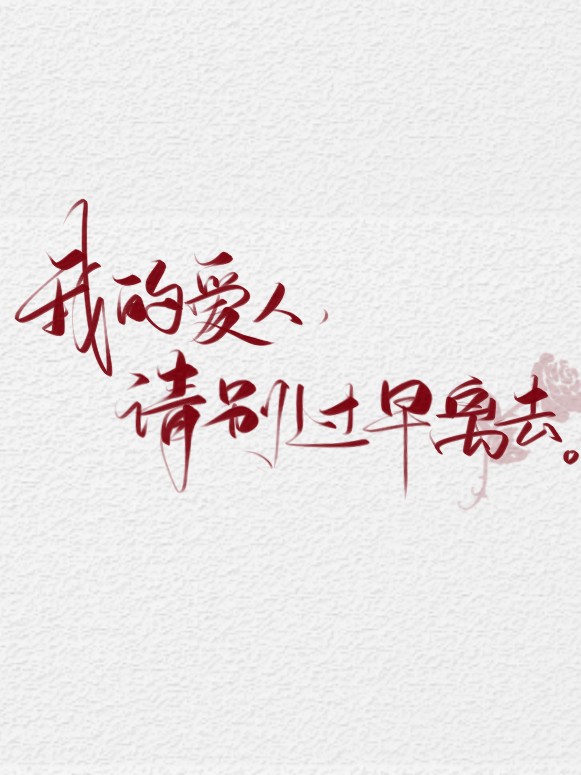 我的爱人，
请别过早离去。